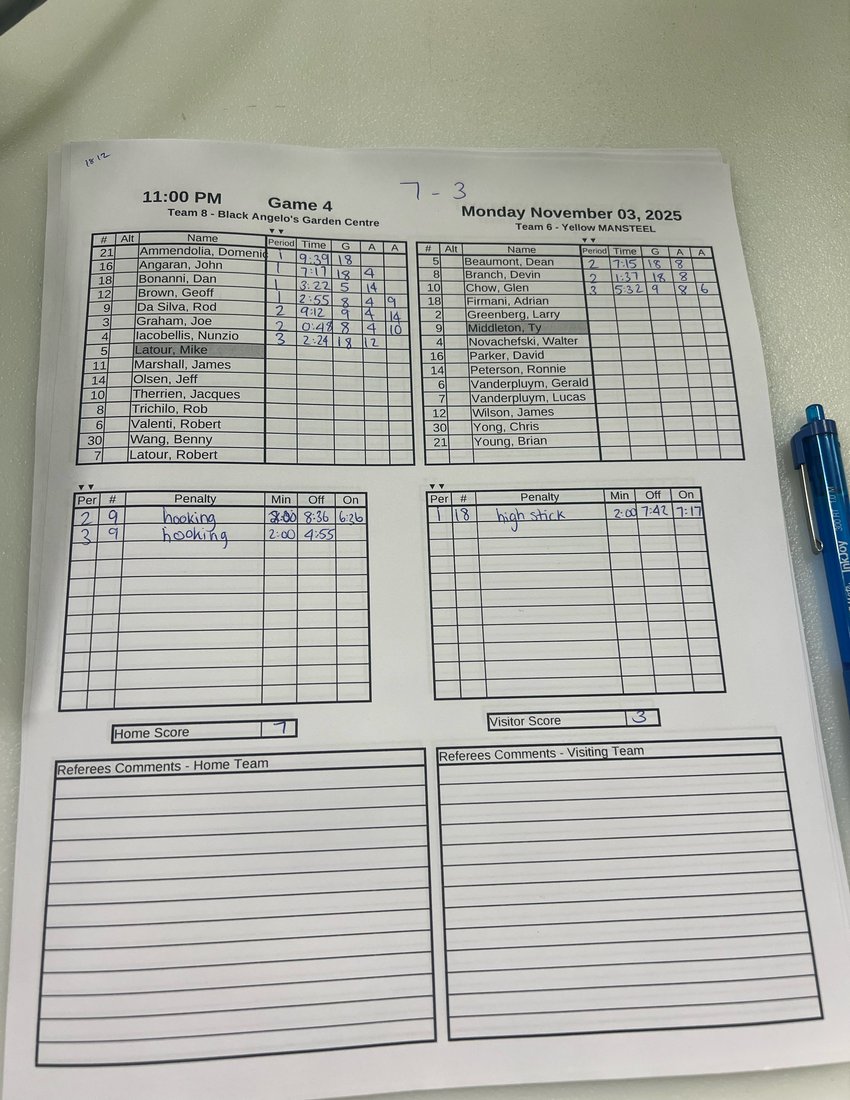 18 12
7 - 3
11:00 PM Game 4
Team 8 - Black Angelo's Garden Centre
# Alt Name Period Time G A A
21 Ammendolia, Domenic 1 9:39 18
16 Angaran, John 1 7:17 18 4
18 Bonanni, Dan 1 3:22 5 14
12 Brown, Geoff 1 2:55 8 4 9
9 Da Silva, Rod 2 9:12 9 4 14
3 Graham, Joe 2 0:48 8 4 10
4 Iacobellis, Nunzio 3 2:24 18 12
5 Latour, Mike
11 Marshall, James
14 Olsen, Jeff
10 Therrien, Jacques
8 Trichilo, Rob
6 Valenti, Robert
30 Wang, Benny
7 Latour, Robert
Monday November 03, 2025
Team 6 - Yellow MANSTEEL
# Alt Name Period Time G A A
5 Beaumont, Dean 2 7:15 18 8
8 Branch, Devin 2 1:37 18 8
10 Chow, Glen 3 5:32 9 8 6
18 Firmani, Adrian
2 Greenberg, Larry
9 Middleton, Ty
4 Novachefski, Walter
16 Parker, David
14 Peterson, Ronnie
6 Vanderpluym, Gerald
7 Vanderpluym, Lucas
12 Wilson, James
30 Yong, Chris
21 Young, Brian
Per # Penalty Min Off On
2 9 hooking 2:00 8:36 6:26
3 9 hooking 2:00 4:55
Per # Penalty Min Off On
1 18 high stick 2:00 7:42 7:17
Home Score 7
Visitor Score 3
Referees Comments - Home Team
Referees Comments - Visiting Team